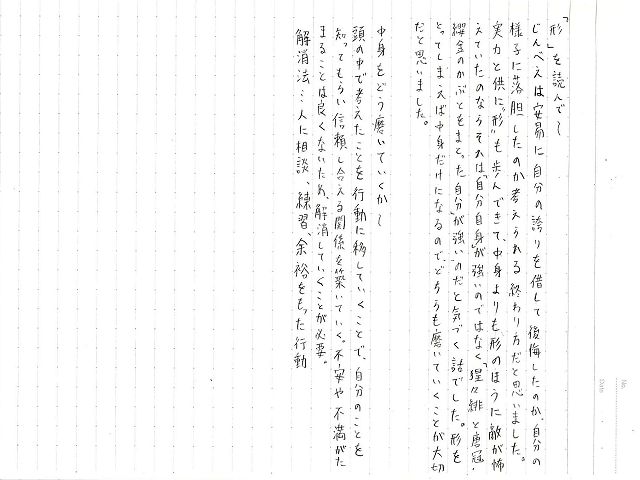 「形」を読んで〜
じんべえは安易に自分の誇りを借して後悔したのか、自分の
様子に落胆したのか考えられる終わり方だと思いました。
実力と供に“形”も歩んできて中身よりも形のほうに敵が怖
えていたのならそれは「自分自身」が強いのではなく「猩々緋と唐冠・
纓金のかぶとをまとった自分」が強いのだと気づく話でした。形を
とってしまえば中身だけになるので、どちらも磨いていくことが大切
だと思いました。
中身をどう磨いていくか〜
頭の中で考えたことを行動に移していくことで、自分のことを
知ってもらい信頼し合える関係を築いていく。不安や不満がた
まることは良くないため、解消していくことが必要。
解消法…人に相談、練習、余裕をもった行動
No.
Date